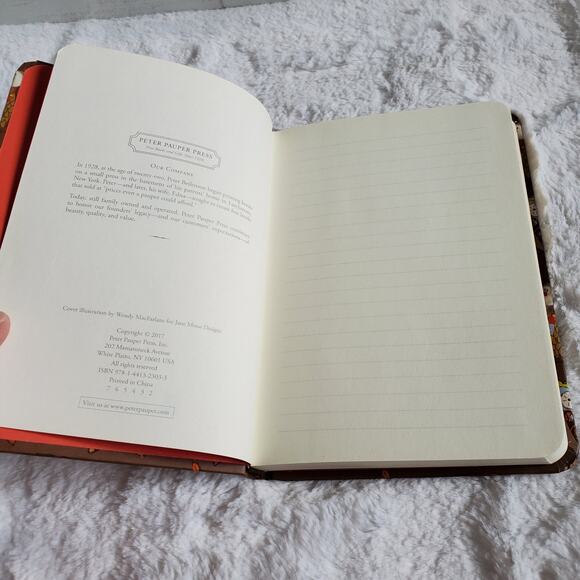 PETER PAUPER PRESS
Fine Books and Gifts Since 1928
OUR COMPANY
In 1928, at the age of twenty-two, Peter Beilenson began printing books
on a small press in the basement of his parents' home in Larchmont,
New York. Peter—and later, his wife, Edna—sought to create fine books
that sold at "prices even a pauper could afford."
Today, still family owned and operated, Peter Pauper Press continues
to honor our founders' legacy—and our customers' expectations—of
beauty, quality, and value.
Cover illustration by Wendy MacFarlane for Jane Mosse Designs
Copyright © 2017
Peter Pauper Press, Inc.
202 Mamaroneck Avenue
White Plains, NY 10601 USA
All rights reserved
ISBN 978-1-4413-2303-3
Printed in China
7 6 5 4 3 2
Visit us at www.peterpauper.com